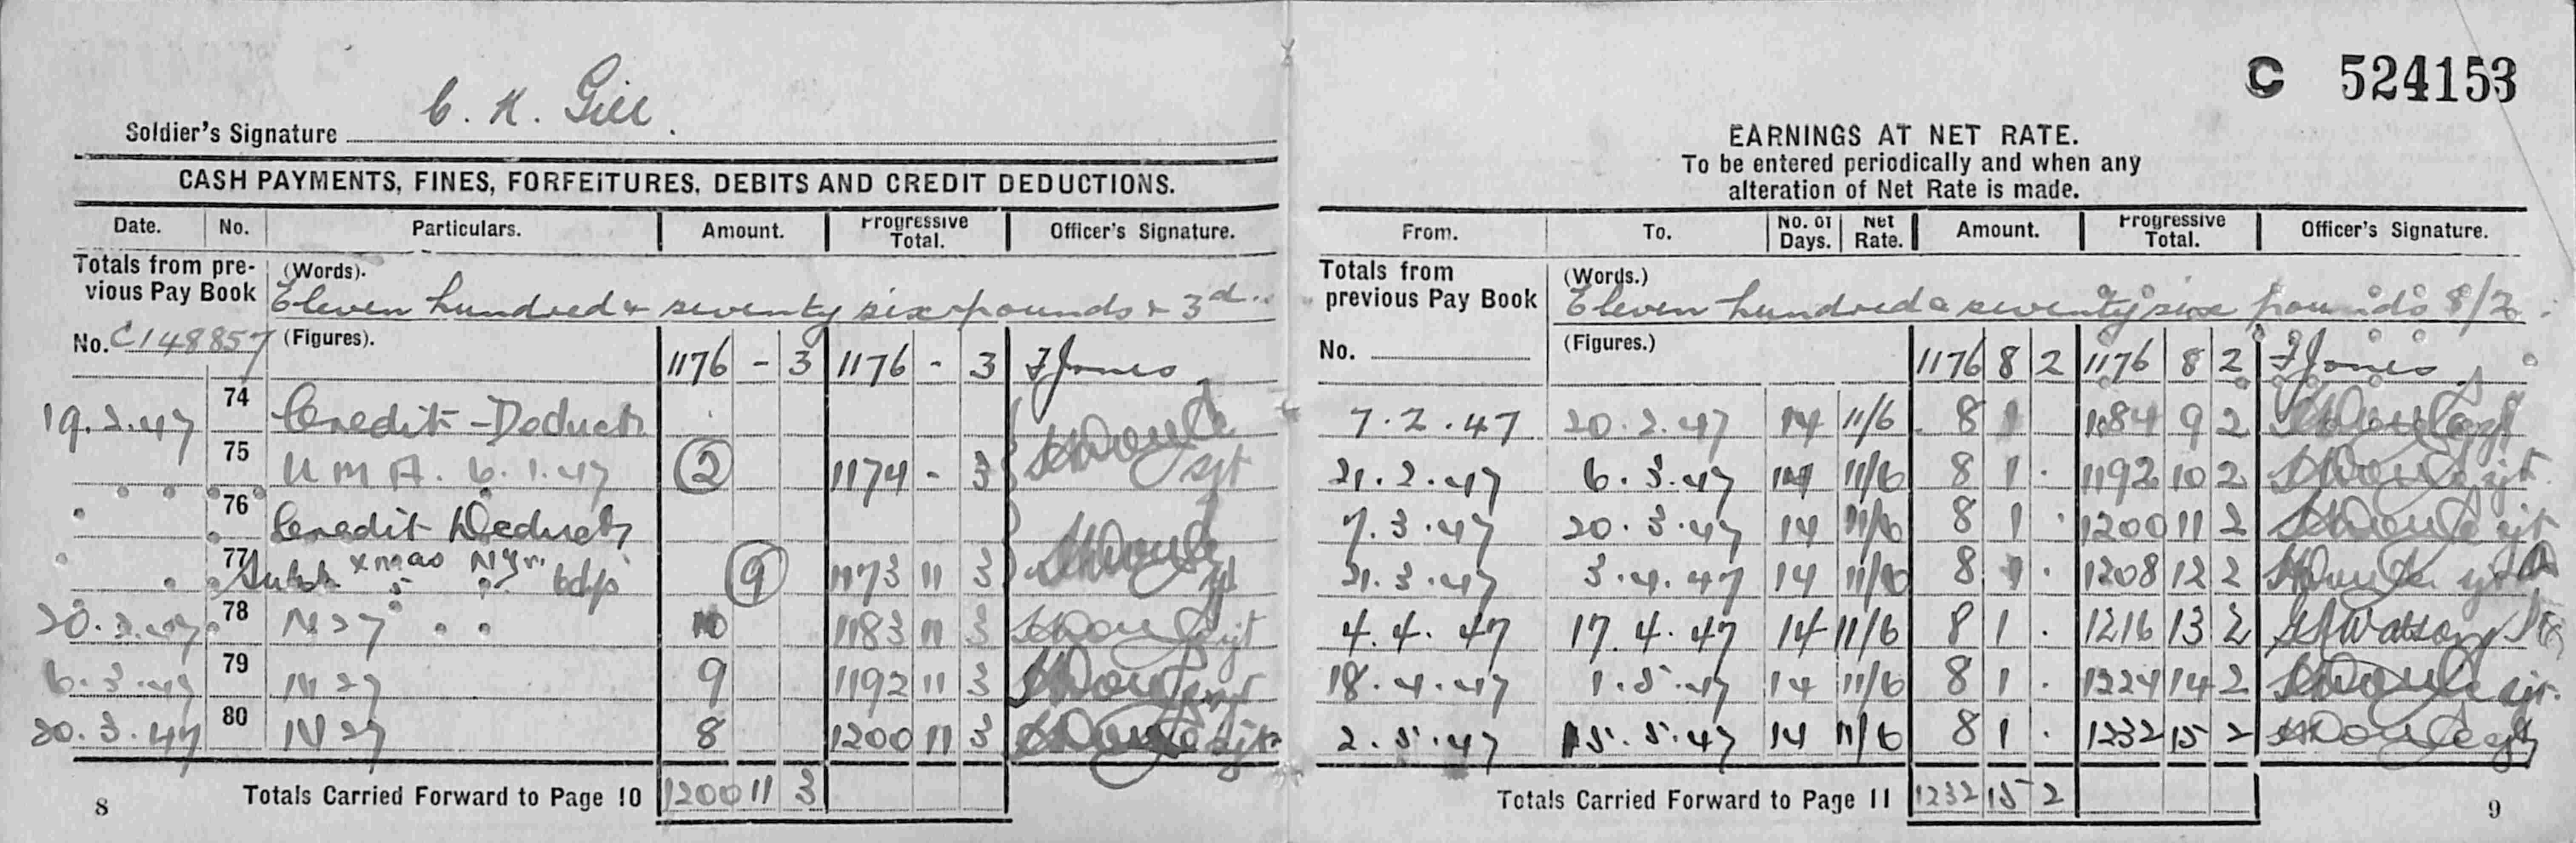 C 524153
C. K. Gill.
Soldier's Signature
CASH PAYMENTS, FINES, FORFEITURES, DEBITS AND CREDIT DEDUCTIONS.
Date. No. Particulars. Amount. Progressive Total. Officer's Signature.
Totals from previous Pay Book (Words). Eleven hundred & seventy six pounds & 3d.
No. C148857 (Figures). 1176 - 3 1176 - 3 F Jones
19.2.47 74 Credit Deducts
75 U M A. 6.1.47 2 1174 - 3 Sjt
76 Credit Deducts
77 Xmas N Yr. 9 1173 11 3
20.2.47 78 N27 10 1183 11 3 Sjt
6.3.47 79 N27 9 1192 11 3
20.3.47 80 N27 8 1200 11 3 Sjt
Totals Carried Forward to Page 10 1200 11 3
8
EARNINGS AT NET RATE.
To be entered periodically and when any
alteration of Net Rate is made.
From. To. No. of Days. Net Rate. Amount. Progressive Total. Officer's Signature.
Totals from previous Pay Book (Words.) Eleven hundred & seventy six pounds 8/2.
No. (Figures.) 1176 8 2 1176 8 2 F Jones
7.2.47 20.2.47 14 11/6 8 1 1184 9 2
21.2.47 6.3.47 14 11/6 8 1 . 1192 10 2 Sjt
7.3.47 20.3.47 14 11/6 8 1 . 1200 11 2 Sjt
21.3.47 3.4.47 14 11/6 8 1 . 1208 12 2 Sjt
4.4.47 17.4.47 14 11/6 8 1 . 1216 13 2 Watson
18.4.47 1.5.47 14 11/6 8 1 . 1224 14 2 Sjt.
2.5.47 15.5.47 14 11/6 8 1 . 1232 15 2 Sjt
Totals Carried Forward to Page 11 1232 15 2
9